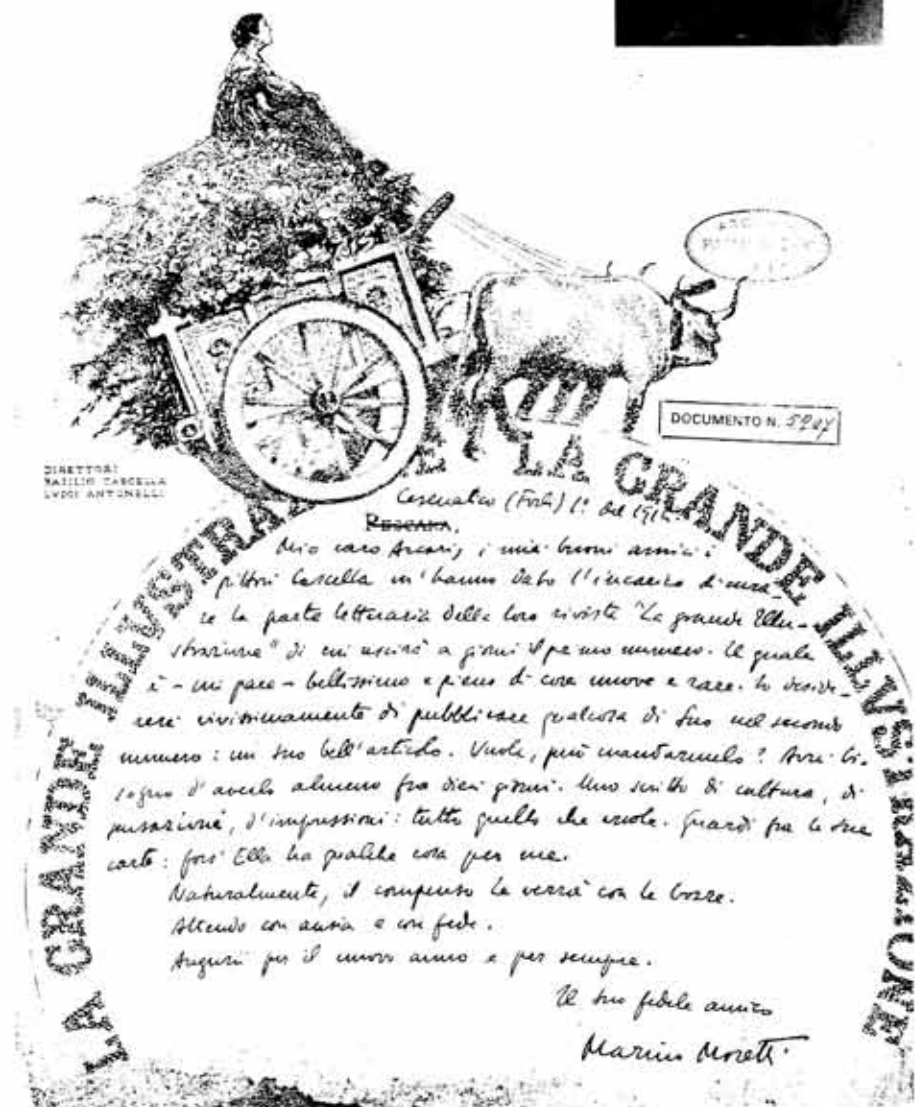 DOCUMENTO N. 5207
DIRETTORI
BASILIO CASCELLA
LVIGI ANTONELLI
LA GRANDE ILLVSTRAZIONE LA GRANDE ILLVSTRAZIONE
Cesenatico (Forlì) 1° del 1914.
PESCARA,
Mio caro Arcari, i miei buoni amici i
pittori Cascella m'hanno dato l'incarico di cura-
re la parte letteraria della loro rivista "La grande Illu-
strazione" di cui uscirà a giorni il primo numero. Il quale
è - mi pare - bellissimo e pieno di cose nuove e rare. Io deside-
rerei vivissimamente di pubblicare qualcosa di Suo nel secondo
numero: un suo bell'articolo. Vuole, può mandarmelo? Avrei bi-
sogno d'averlo almeno fra dieci giorni. Uno scritto di cultura, di
, d'impressioni: tutto quello che vuole. Guardi fra le sue
carte: fors'Ella ha qualche cosa per me.
Naturalmente, il compenso le verrà con le bozze.
Attendo con ansia e con fede.
Auguri per il nuovo anno e per sempre.
Il suo fedele amico
Marino Moretti